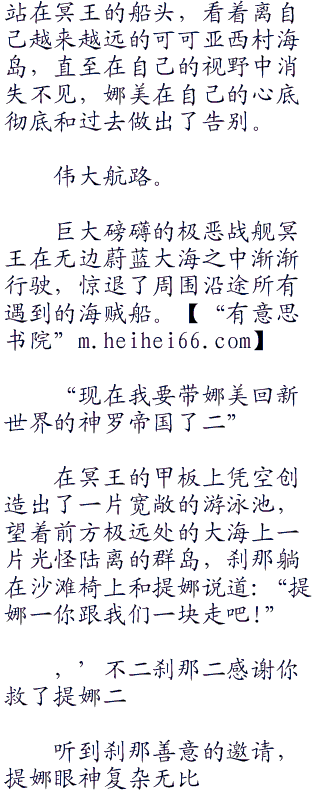 站在冥王的船头，看着离自
己越来越远的可可亚西村海
岛，直至在自己的视野中消
失不见，娜美在自己的心底
彻底和过去做出了告别。
伟大航路。
巨大磅礴的极恶战舰冥
王在无边蔚蓝大海之中渐渐
行驶，惊退了周围沿途所有
遇到的海贼船。【“有意思
书院”m.heihei66.com】
“现在我要带娜美回新
世界的神罗帝国了二”
在冥王的甲板上凭空创
造出了一片宽敞的游泳池，
望着前方极远处的大海上一
片光怪陆离的群岛，刹那躺
在沙滩椅上和提娜说道：“提
娜一你跟我们一块走吧！”
，’不二刹那二感谢你
救了提娜二
听到刹那善意的邀请，
提娜眼神复杂无比